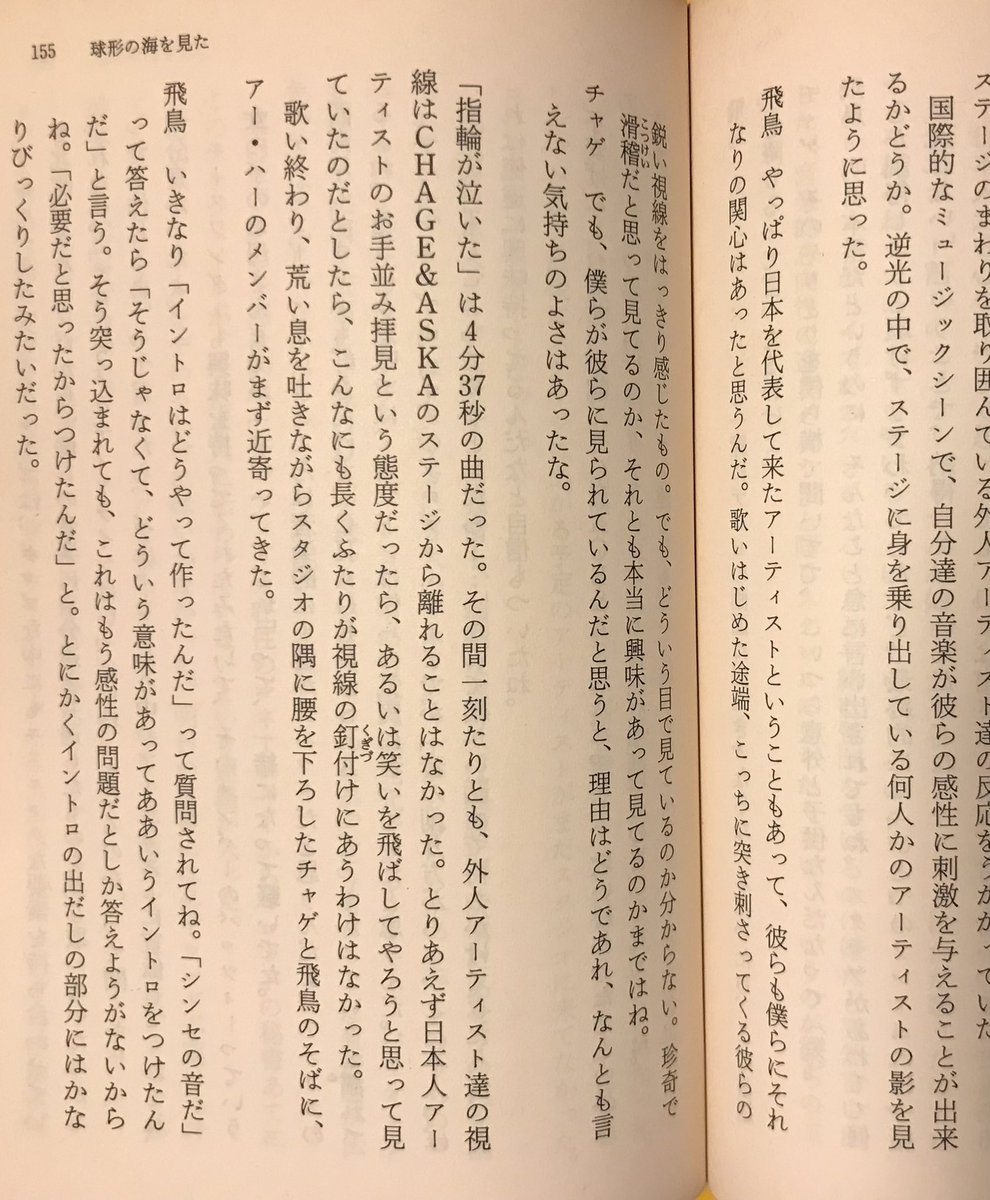 ステージのまわりを取り囲んでいる外人アーティスト達の反応をうかがっていた
国際的なミュージックシーンで、自分達の音楽が彼らの感性に刺激を与えることが出来
るかどうか。逆光の中で、ステージに身を乗り出している何人かのアーティストの影を見
たように思った。
飛鳥 やっぱり日本を代表して来たアーティストということもあって、彼らも僕らにそれ
なりの関心はあったと思うんだ。歌いはじめた途端、こっちに突き刺さってくる彼らの
155 球形の海を見た
鋭い視線をはっきり感じたもの。でも、どういう目で見ているのか分からない。珍奇で
滑稽だと思って見てるのか、それとも本当に興味があって見てるのかまではね。
こっけい
チャゲ でも、僕らが彼らに見られているんだと思うと、理由はどうであれ、なんとも言
えない気持ちのよさはあったな。
「指輪が泣いた」は4分37秒の曲だった。その間一刻たりとも、外人アーティスト達の視
線はCHAGE&ASKAのステージから離れることはなかった。とりあえず日本人アー
ティストのお手並み拝見という態度だったら、あるいは笑いを飛ばしてやろうと思って見
ていたのだとしたら、こんなにも長くふたりが視線の釘付けにあうわけはなかった。
くぎづ
歌い終わり、荒い息を吐きながらスタジオの隅に腰を下ろしたチャゲと飛鳥のそばに、
アー・ハーのメンバーがまず近寄ってきた。
飛鳥 いきなり「イントロはどうやって作ったんだ」って質問されてね。「シンセの音だ」
って答えたら「そうじゃなくて、どういう意味があってああいうイントロをつけたん
だ」と言う。そう突っ込まれても、これはもう感性の問題だとしか答えようがないから
ね。「必要だと思ったからつけたんだ」と。とにかくイントロの出だしの部分にはかな
りびっくりしたみたいだった。